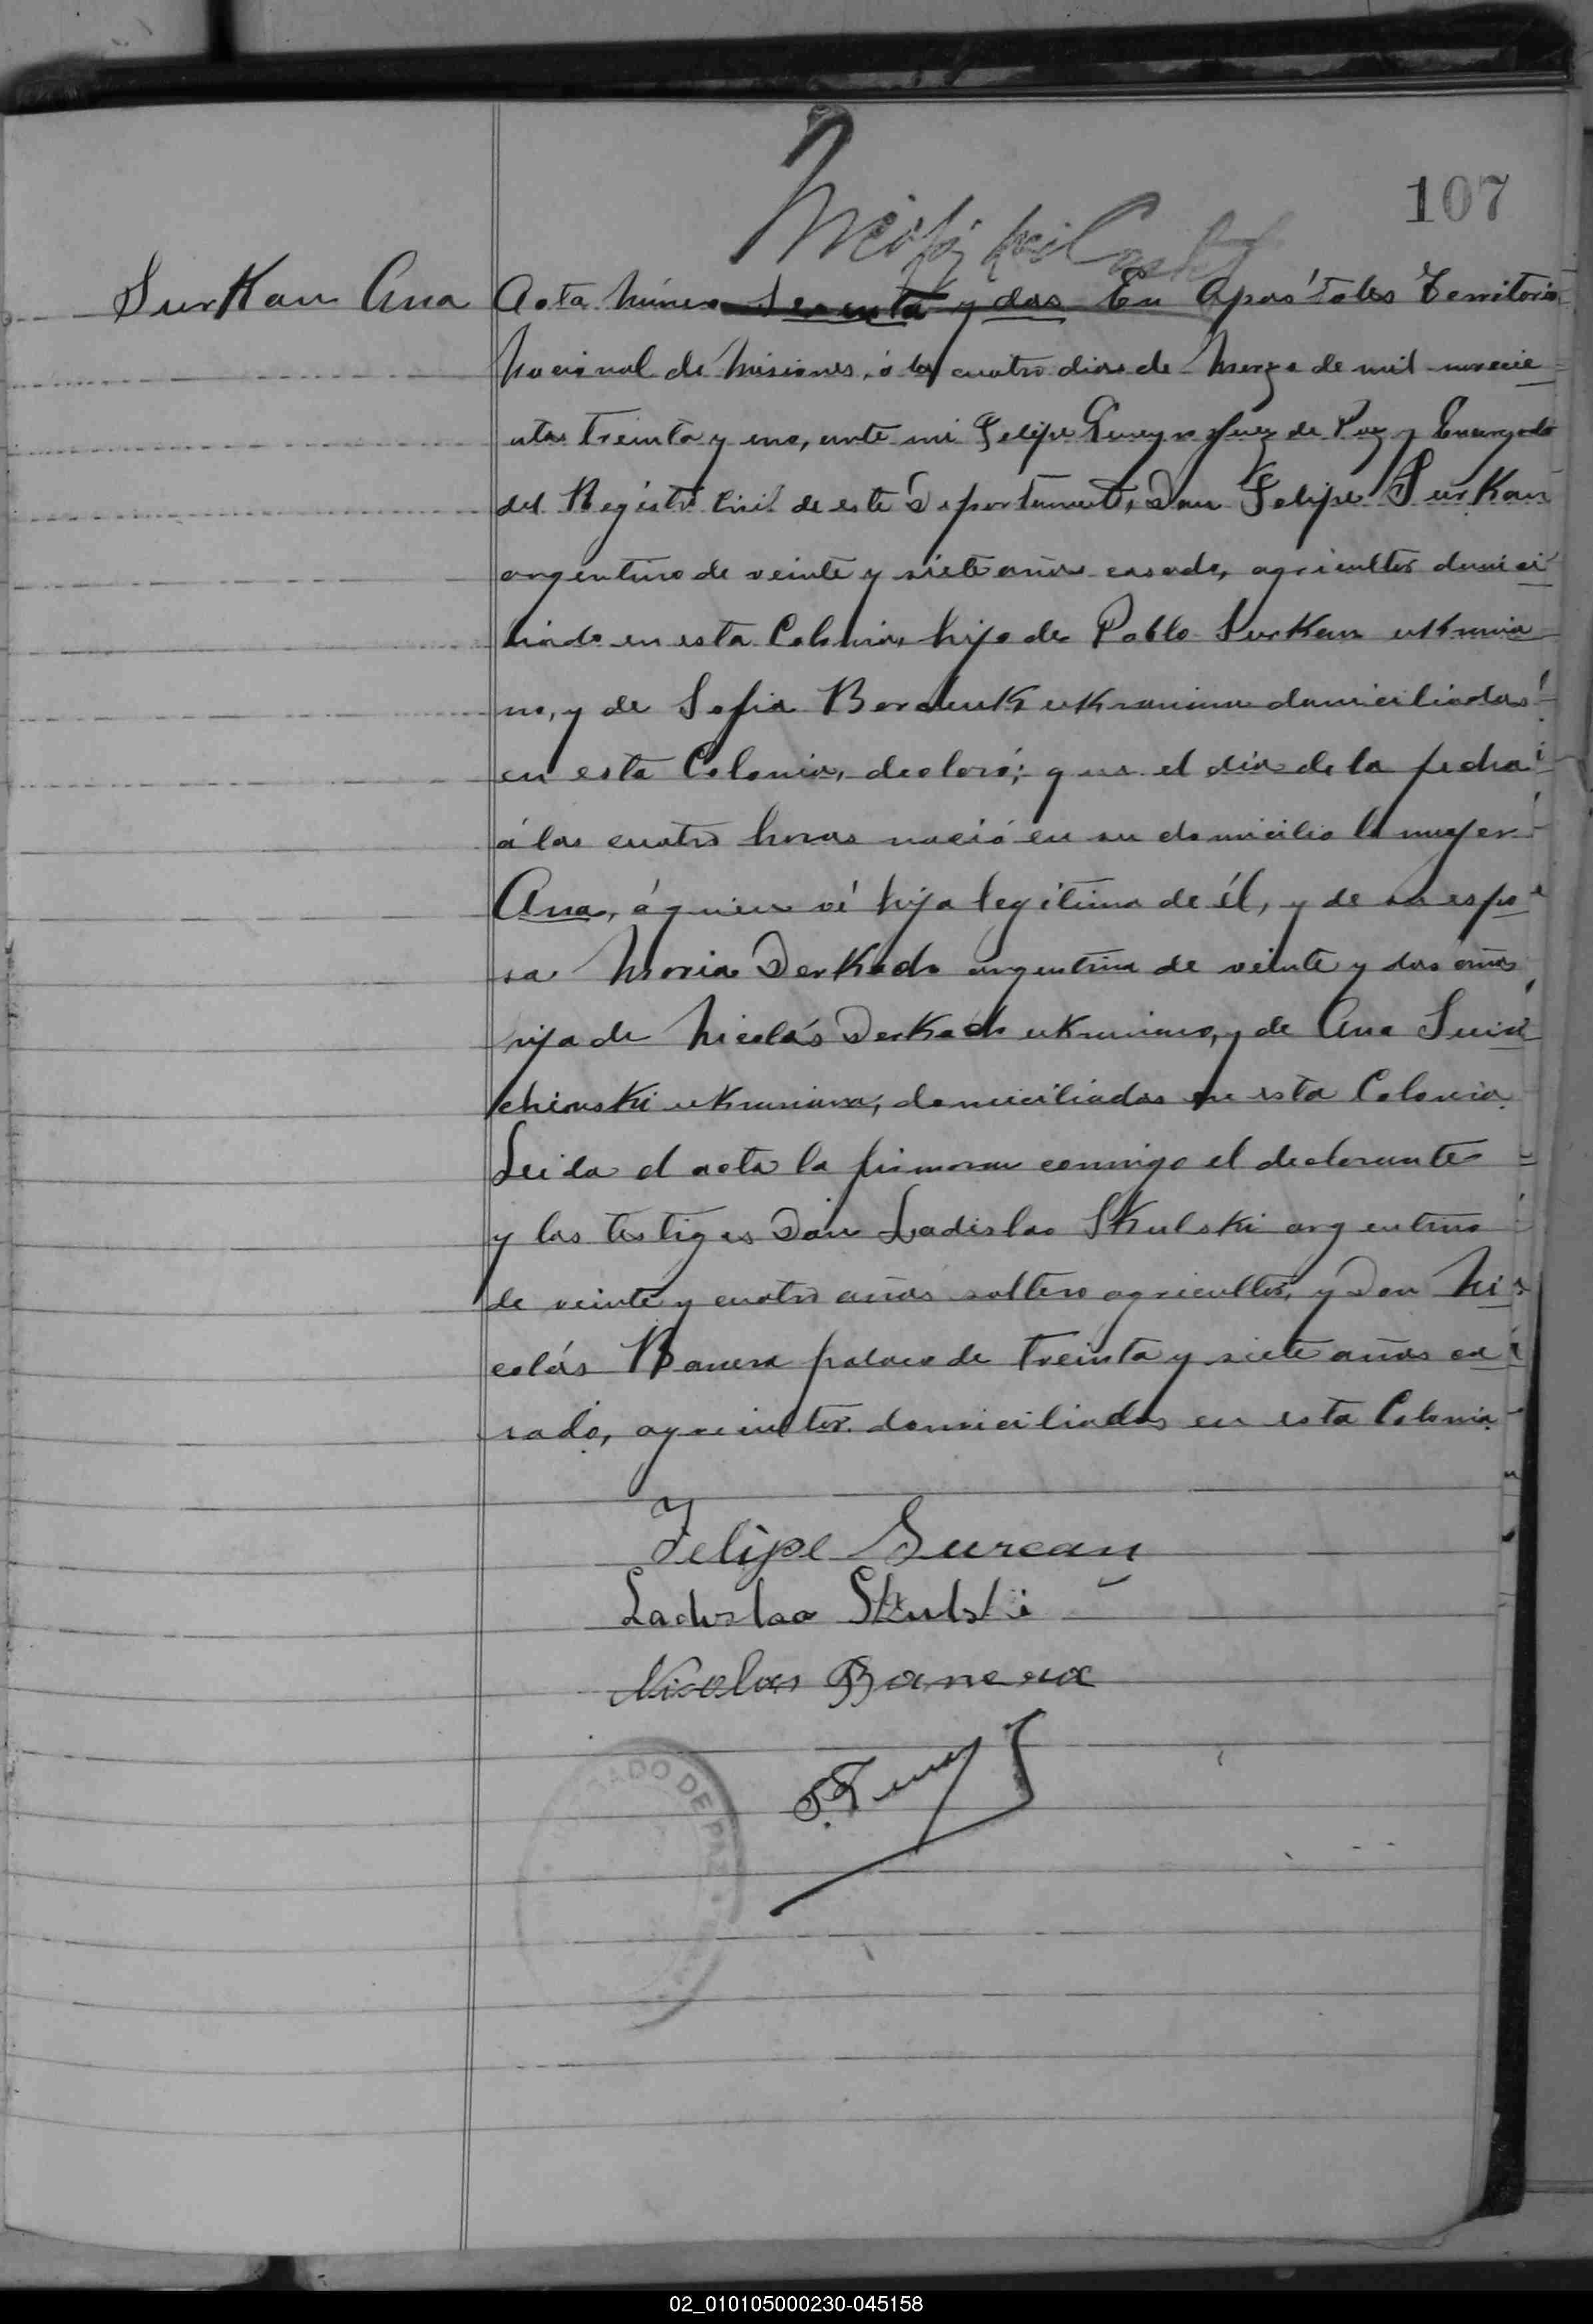 107
Surkan Ana
Acta número sesenta y dos En Apóstoles Territorio
Nacional de Misiones, á los cuatro dias de Marzo de mil novecie
ntos treinta y uno, ante mi Felipe Juez de Paz y Encargado
del Registro Civil de este Departamento, Don Felipe Surkan
argentino de veinte y siete años casado, agricultor domici
liado en esta Colonia, hijo de Pablo Surkan ukrania
no, y de Sofia ukraniana domiciliados
en esta Colonia, declaró; que el dia de la fecha
á las cuatro horas nació en su domicilio la mujer
Ana, á quien ví hija legítima de él, y de su espo
sa Maria Derkach argentina de veinte y dos años
hija de Nicolás Derkach ukraniano, y de Ana
chinski ukraniana, domiciliados en esta Colonia
Leida el acta la firmaron conmigo el declarante
y los testigos Don Ladislao Skulski argentino
de veinte y cuatro años soltero agricultor, y Don Ni
colás Banera polaco de treinta y siete años ca
sado, agricultor domiciliados en esta Colonia.
Felipe Surcan
Ladislao Skulski
Nicolas Banera
JUZGADO DE PAZ
02_010105000230-045158